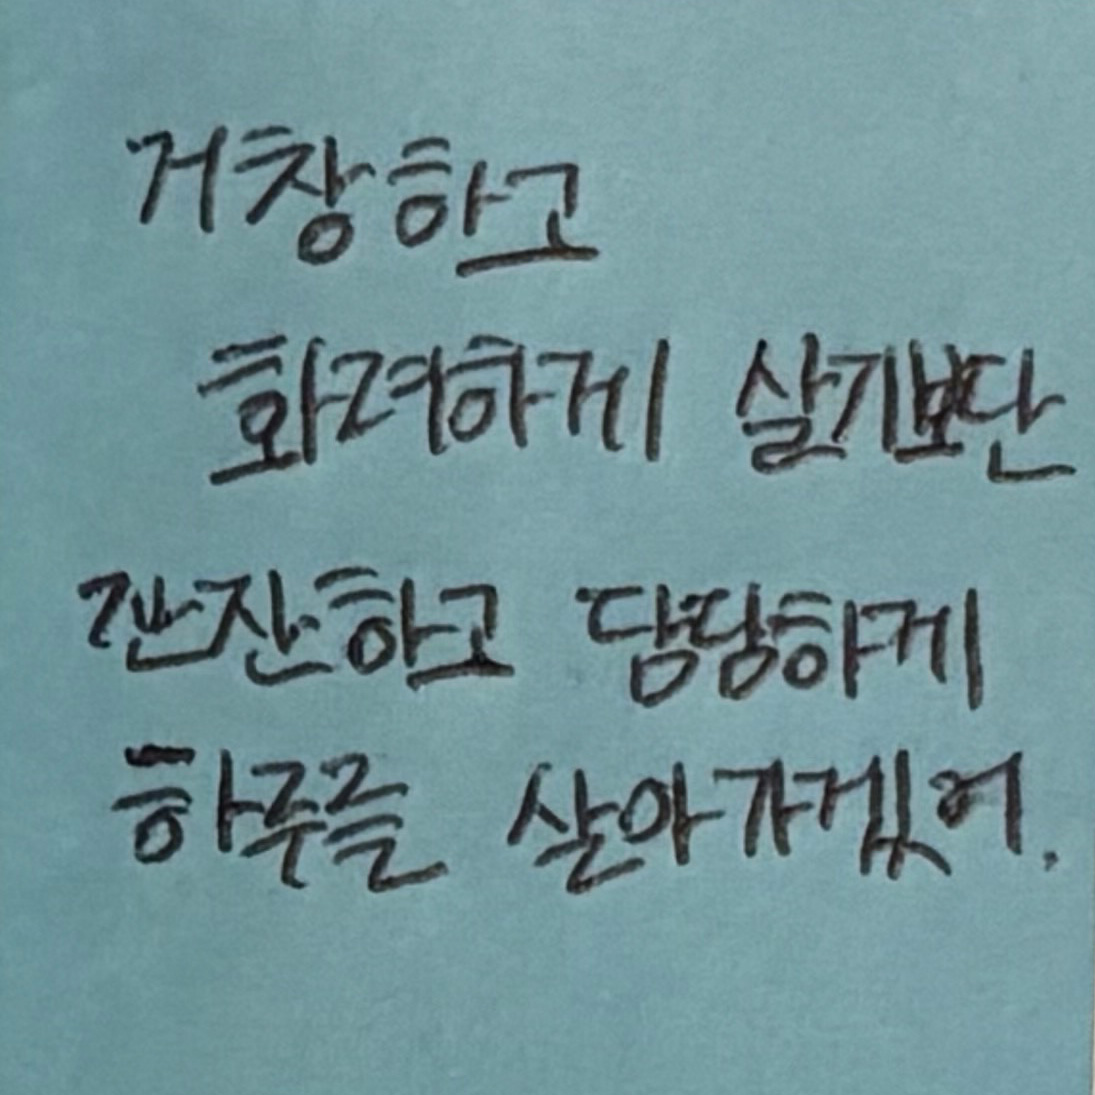 거창하고
화려하게 살기보단
잔잔하고 담담하게
하루를 살아가겠어.